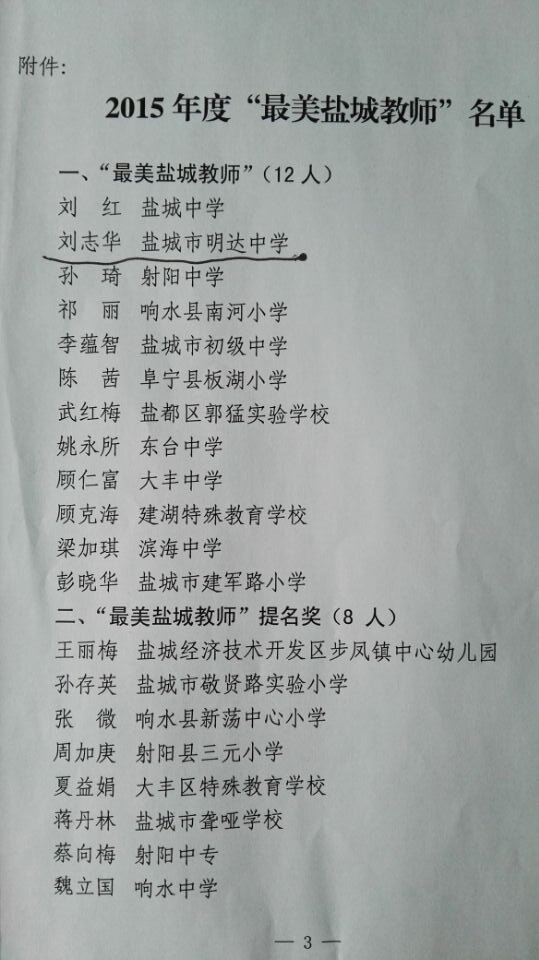 附件：
2015 年度“最美盐城教师”名单
一、“最美盐城教师”（12 人）
刘 红 盐城中学
刘志华 盐城市明达中学
孙 琦 射阳中学
祁 丽 响水县南河小学
李蕴智 盐城市初级中学
陈 茜 阜宁县板湖小学
武红梅 盐都区郭猛实验学校
姚永所 东台中学
顾仁富 大丰中学
顾克海 建湖特殊教育学校
梁加琪 滨海中学
彭晓华 盐城市建军路小学
二、“最美盐城教师”提名奖（8 人）
王丽梅 盐城经济技术开发区步凤镇中心幼儿园
孙存英 盐城市敬贤路实验小学
张 微 响水县新荡中心小学
周加庚 射阳县三元小学
夏益娟 大丰区特殊教育学校
蒋丹林 盐城市聋哑学校
蔡向梅 射阳中专
魏立国 响水中学
— 3 —